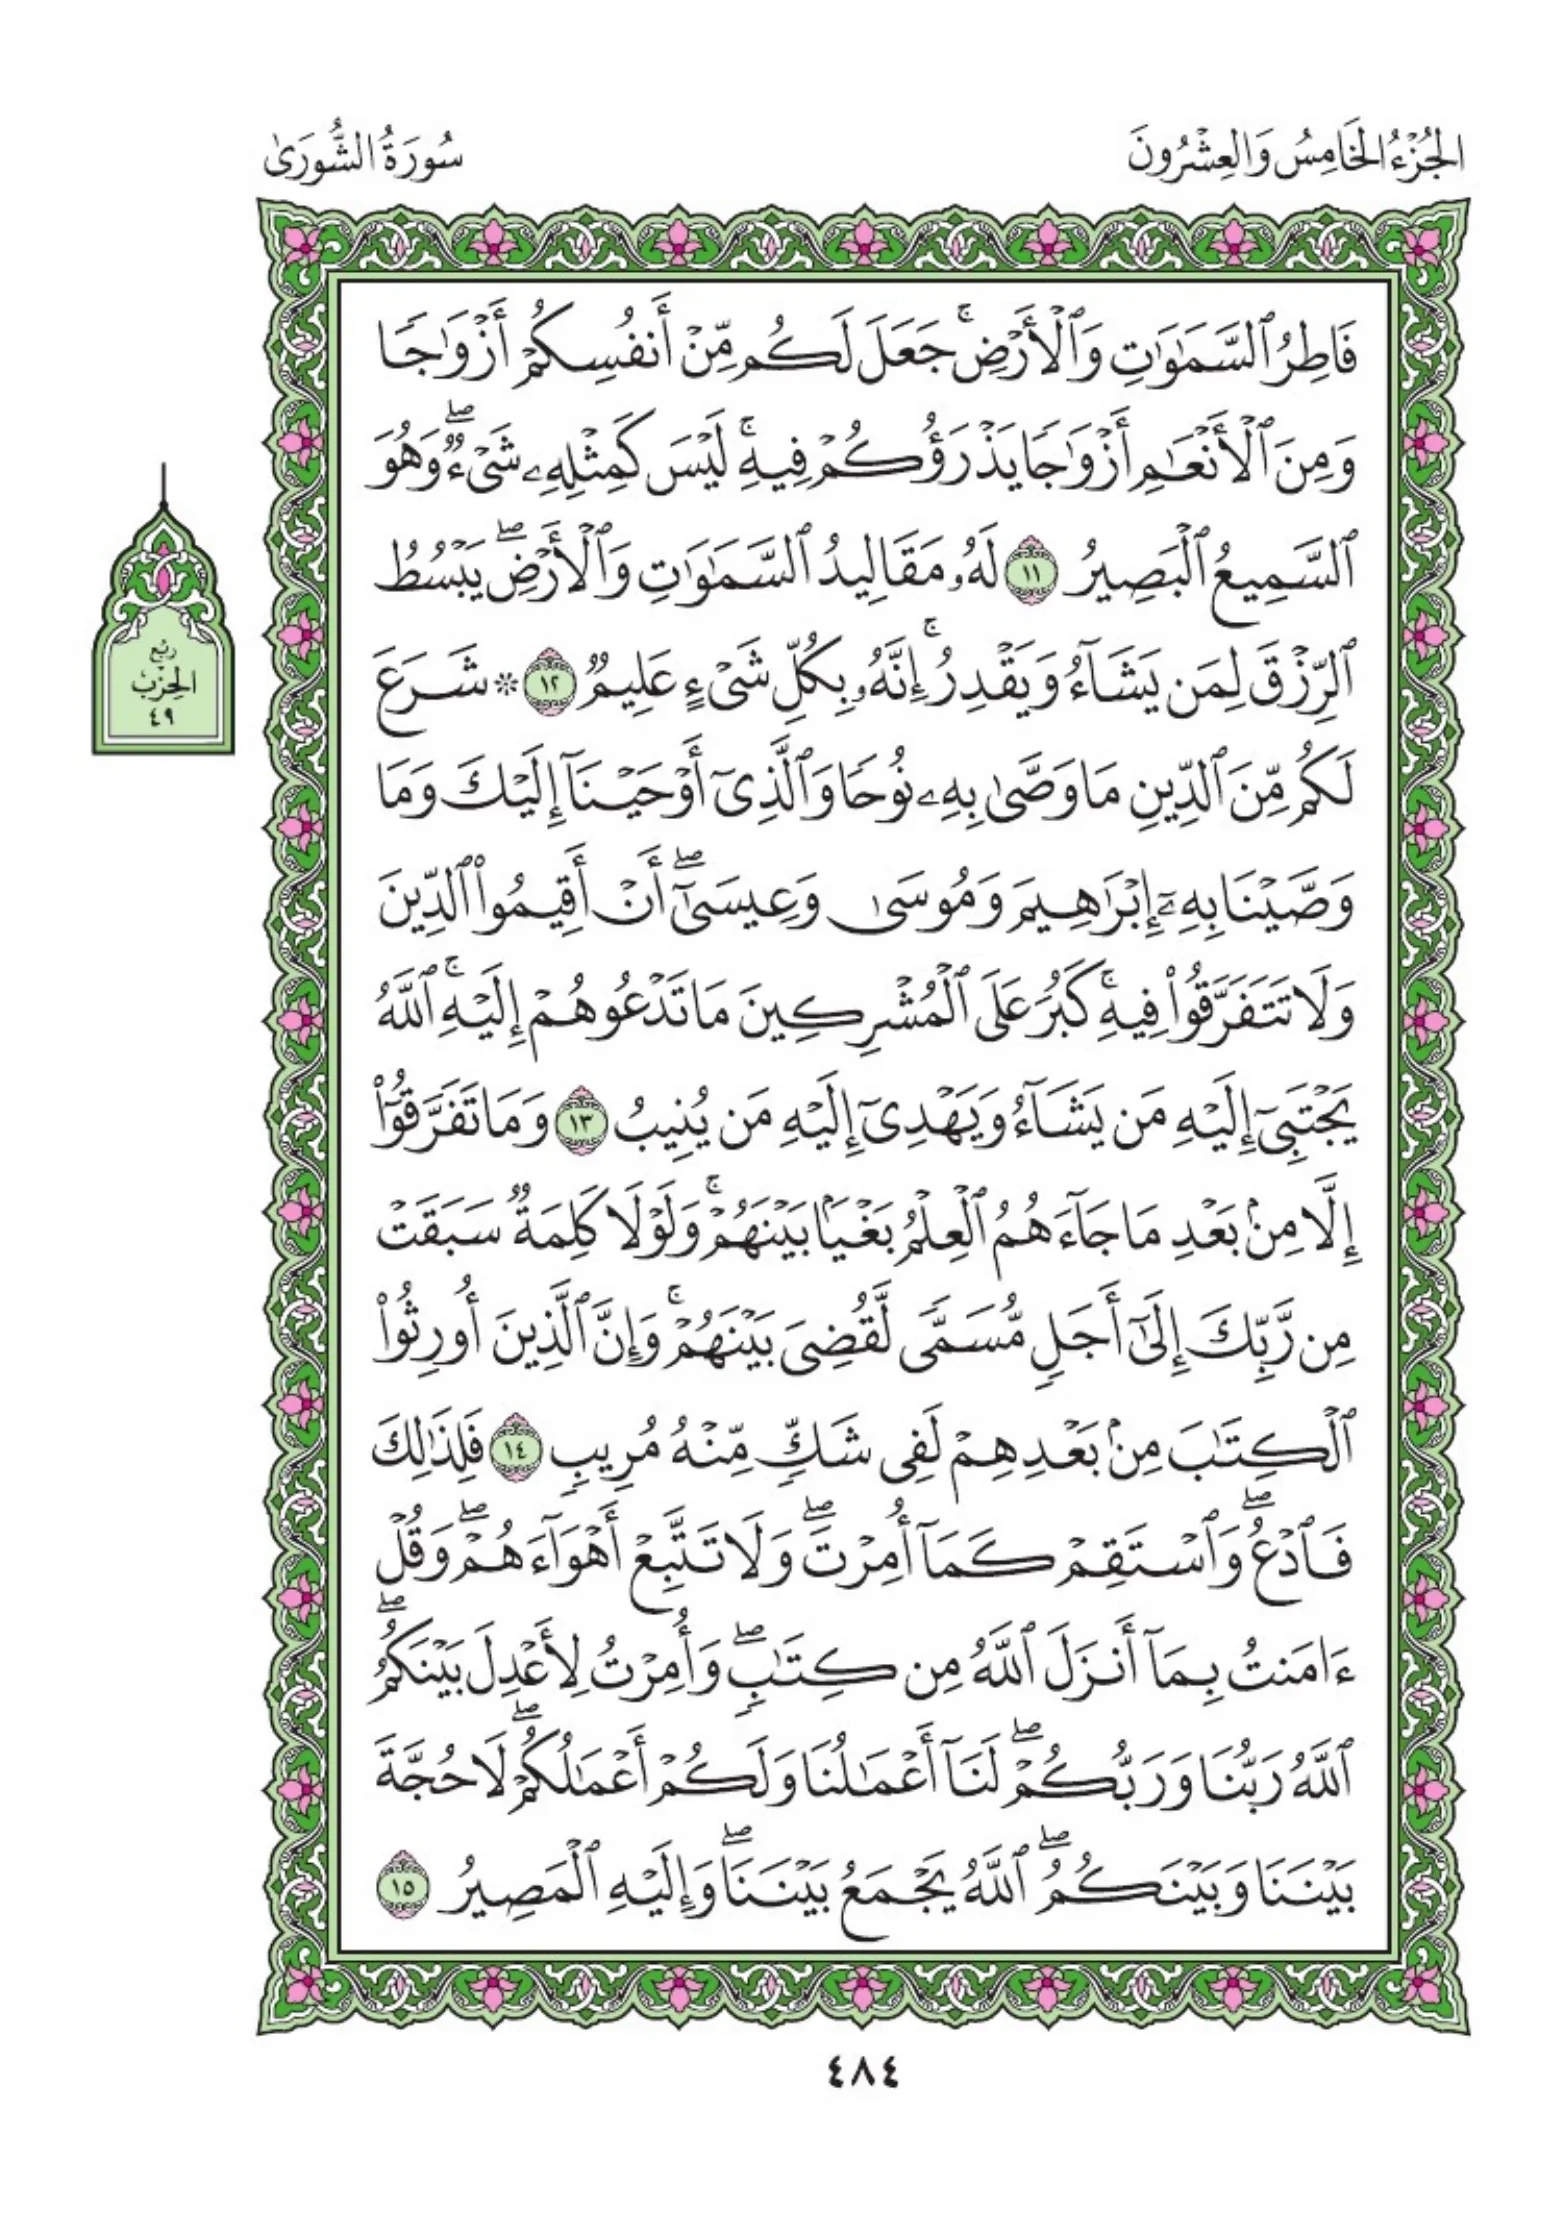 الجُزْءُ الخَامِسُ وَالعِشْرُونَ
سُورَةُ الشُّورَىٰ
فَاطِرُ ٱلسَّمَٰوَٰتِ وَٱلْأَرْضِۚ جَعَلَ لَكُم مِّنْ أَنفُسِكُمْ أَزْوَٰجًا
وَمِنَ ٱلْأَنْعَٰمِ أَزْوَٰجًا يَذْرَؤُكُمْ فِيهِۚ لَيْسَ كَمِثْلِهِۦ شَىْءٌۖ وَهُوَ
ٱلسَّمِيعُ ٱلْبَصِيرُ ١١ لَهُۥ مَقَالِيدُ ٱلسَّمَٰوَٰتِ وَٱلْأَرْضِۖ يَبْسُطُ
ٱلرِّزْقَ لِمَن يَشَآءُ وَيَقْدِرُۚ إِنَّهُۥ بِكُلِّ شَىْءٍ عَلِيمٌ ١٢ ۞ شَرَعَ
لَكُم مِّنَ ٱلدِّينِ مَا وَصَّىٰ بِهِۦ نُوحًا وَٱلَّذِىٓ أَوْحَيْنَآ إِلَيْكَ وَمَا
وَصَّيْنَا بِهِۦٓ إِبْرَٰهِيمَ وَمُوسَىٰ وَعِيسَىٰٓۖ أَنْ أَقِيمُوا۟ ٱلدِّينَ
وَلَا تَتَفَرَّقُوا۟ فِيهِۚ كَبُرَ عَلَى ٱلْمُشْرِكِينَ مَا تَدْعُوهُمْ إِلَيْهِۚ ٱللَّهُ
يَجْتَبِىٓ إِلَيْهِ مَن يَشَآءُ وَيَهْدِىٓ إِلَيْهِ مَن يُنِيبُ ١٣ وَمَا تَفَرَّقُوٓا۟
إِلَّا مِنۢ بَعْدِ مَا جَآءَهُمُ ٱلْعِلْمُ بَغْيًۢا بَيْنَهُمْۚ وَلَوْلَا كَلِمَةٌ سَبَقَتْ
مِن رَّبِّكَ إِلَىٰٓ أَجَلٍ مُّسَمًّى لَّقُضِىَ بَيْنَهُمْۚ وَإِنَّ ٱلَّذِينَ أُورِثُوا۟
ٱلْكِتَٰبَ مِنۢ بَعْدِهِمْ لَفِى شَكٍّ مِّنْهُ مُرِيبٍ ١٤ فَلِذَٰلِكَ
فَٱدْعُۖ وَٱسْتَقِمْ كَمَآ أُمِرْتَۖ وَلَا تَتَّبِعْ أَهْوَآءَهُمْۖ وَقُلْ
ءَامَنتُ بِمَآ أَنزَلَ ٱللَّهُ مِن كِتَٰبٍۖ وَأُمِرْتُ لِأَعْدِلَ بَيْنَكُمُۖ
ٱللَّهُ رَبُّنَا وَرَبُّكُمْۖ لَنَآ أَعْمَٰلُنَا وَلَكُمْ أَعْمَٰلُكُمْۖ لَا حُجَّةَ
بَيْنَنَا وَبَيْنَكُمُۖ ٱللَّهُ يَجْمَعُ بَيْنَنَاۖ وَإِلَيْهِ ٱلْمَصِيرُ ١٥
رُبْع
الحِزْب
٤٩
٤٨٤